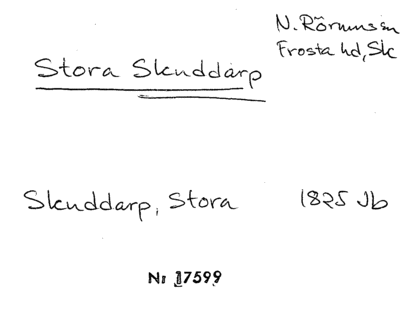 N. Rörums sn
Frosta hd, Sk
Stora Skuddarp
Skuddarp, Stora 1825 Jb
Nr 17599